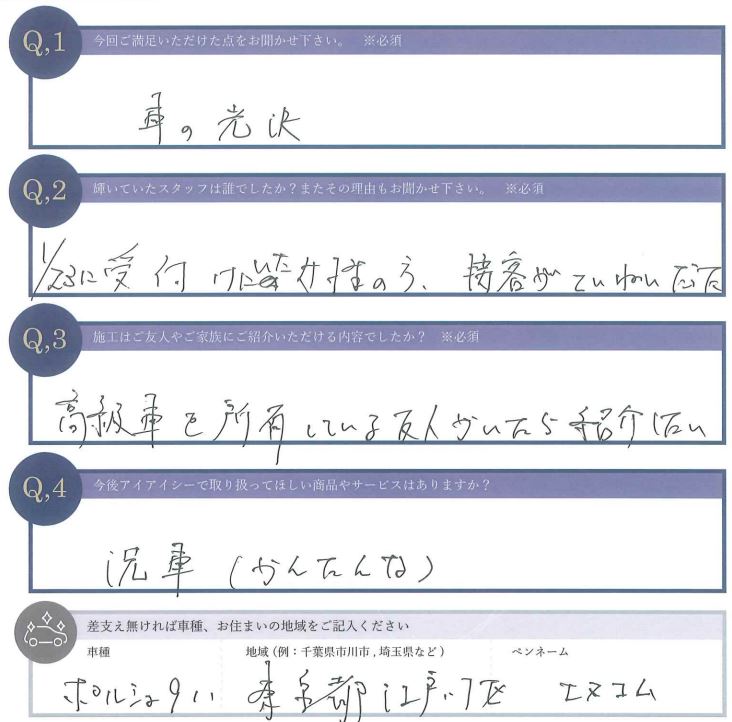 Q,1
今回ご満足いただけた点をお聞かせ下さい。 ※必須
車の光沢
Q,2
輝いていたスタッフは誰でしたか？またその理由もお聞かせ下さい。 ※必須
1/23に受付けにいた女性の方、接客がていねいだった
Q,3
施工はご友人やご家族にご紹介いただける内容でしたか？ ※必須
高級車を所有している友人がいたら紹介したい
Q,4
今後アイアイシーで取り扱ってほしい商品やサービスはありますか？
洗車(かんたんな)
差支え無ければ車種、お住まいの地域をご記入ください
車種 地域(例：千葉県市川市,埼玉県など) ペンネーム
ポルシェ911 東京都江戸川区 エヌコム